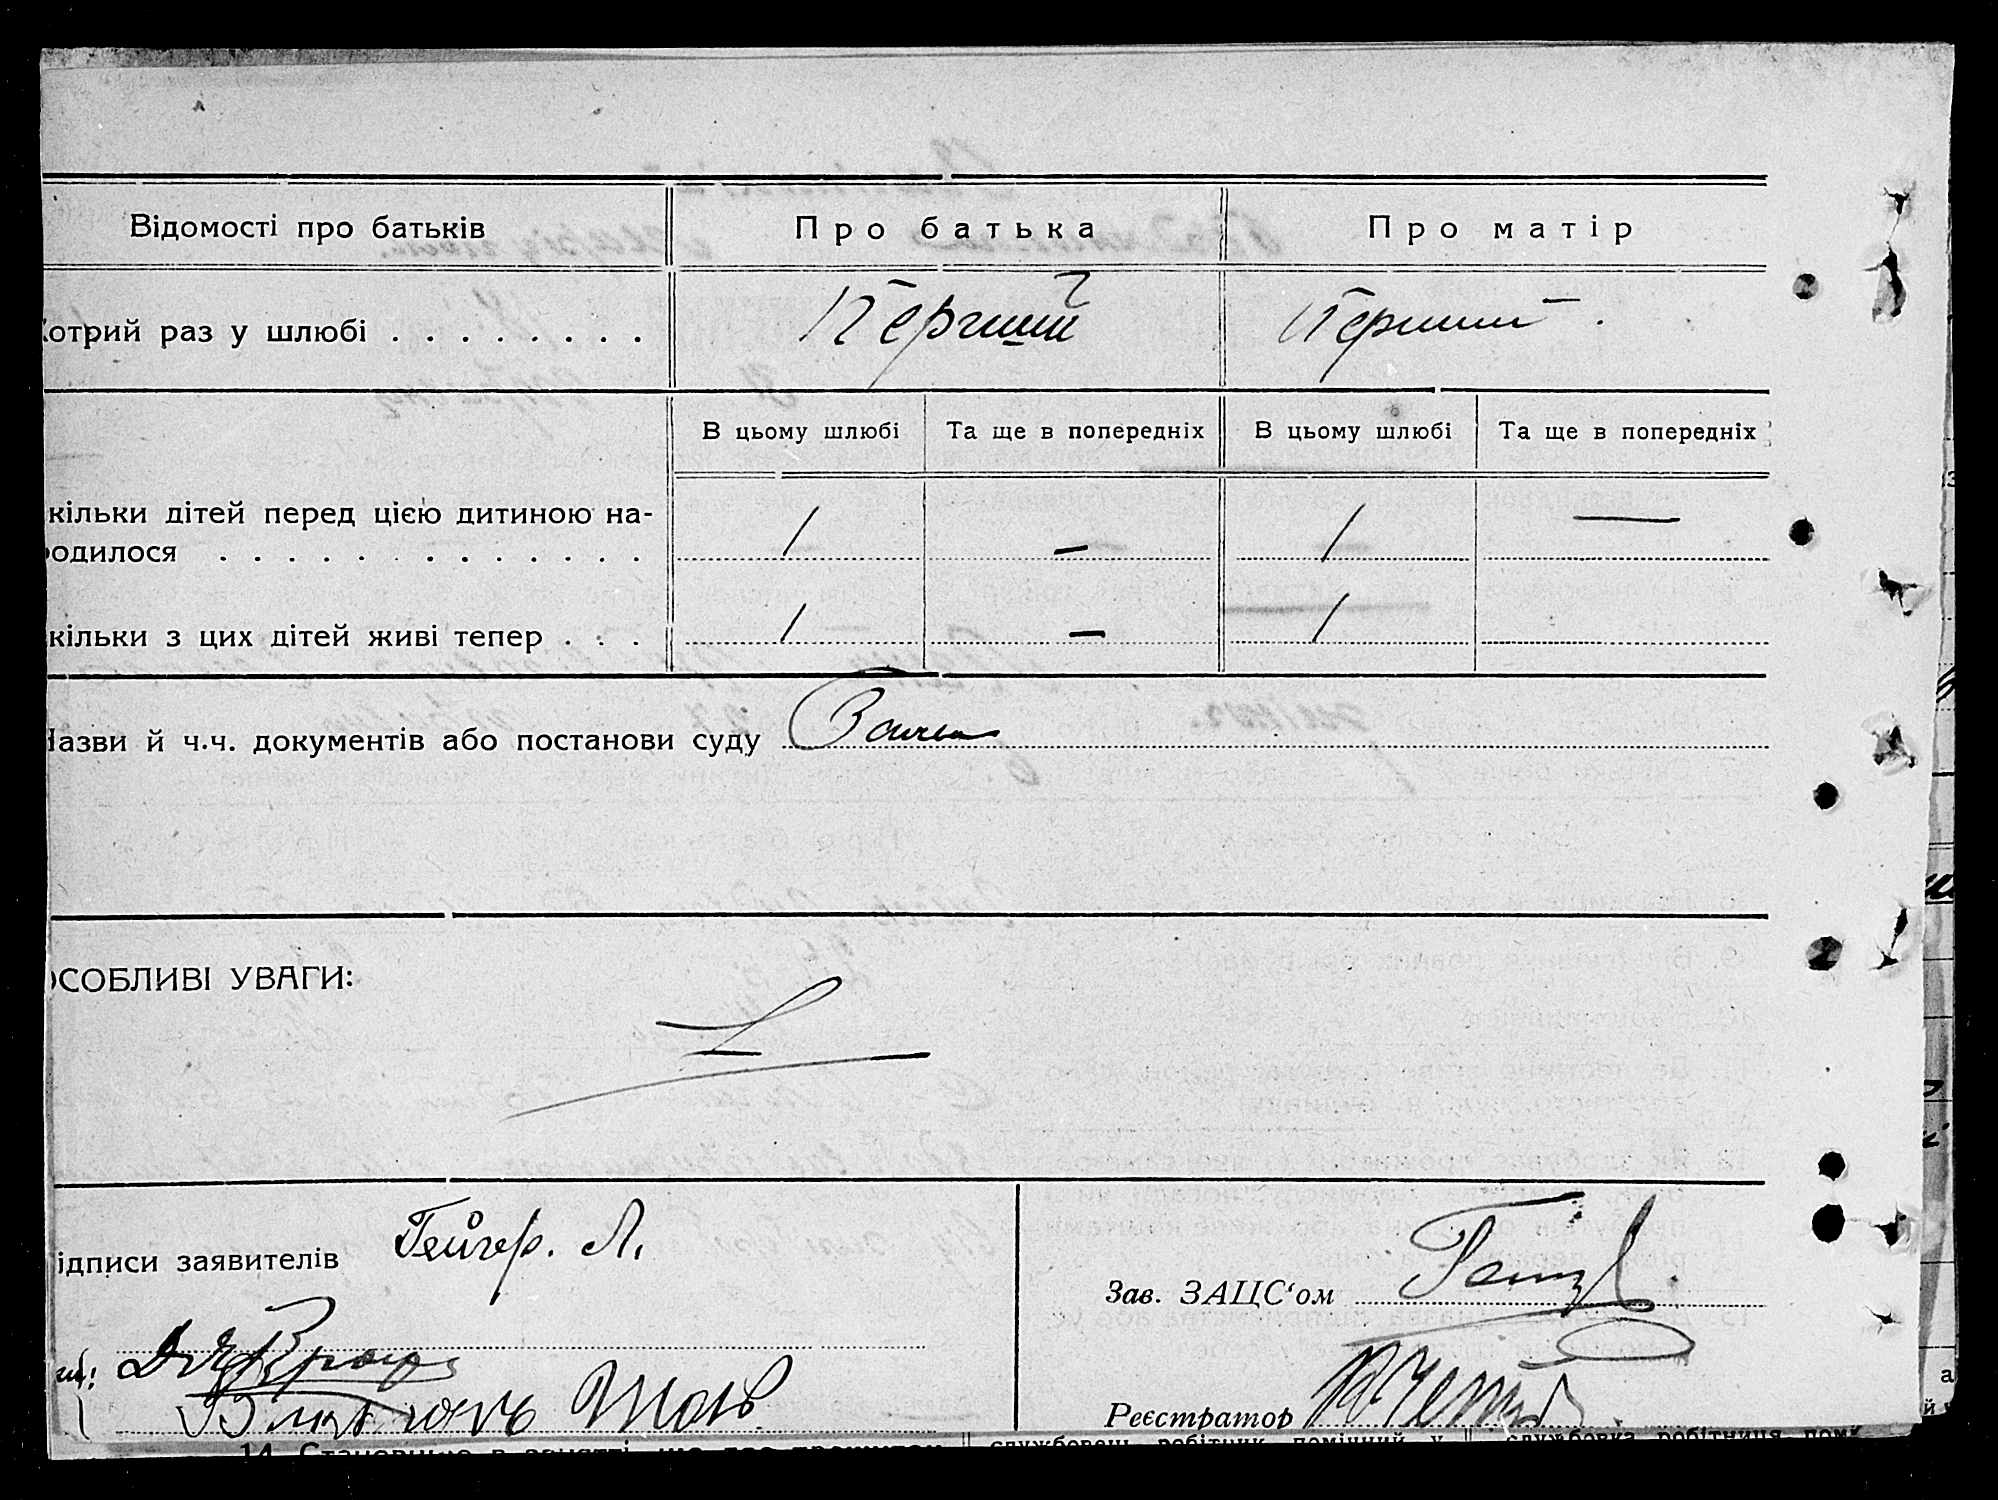 Відомості про батьків Про батька Про матір
Котрий раз у шлюбі . . . . . . . . Перший Перший
В цьому шлюбі Та ще в попередніх В цьому шлюбі Та ще в попередніх
кільки дітей перед цією дитиною на-
родилося . . . . . . . . . . . . . 1 — 1 —
кільки з цих дітей живі тепер . . . 1 — 1
Назви й ч.ч. документів або постанови суду
ОСОБЛИВІ УВАГИ:
ідписи заявителів Гейгер. Л.
Зав. ЗАЦС‘ом
Реєстратор
14. Становище в занятті, що дає прожиток
службовець, робітник, помічний у
службовка, робітниця, пом